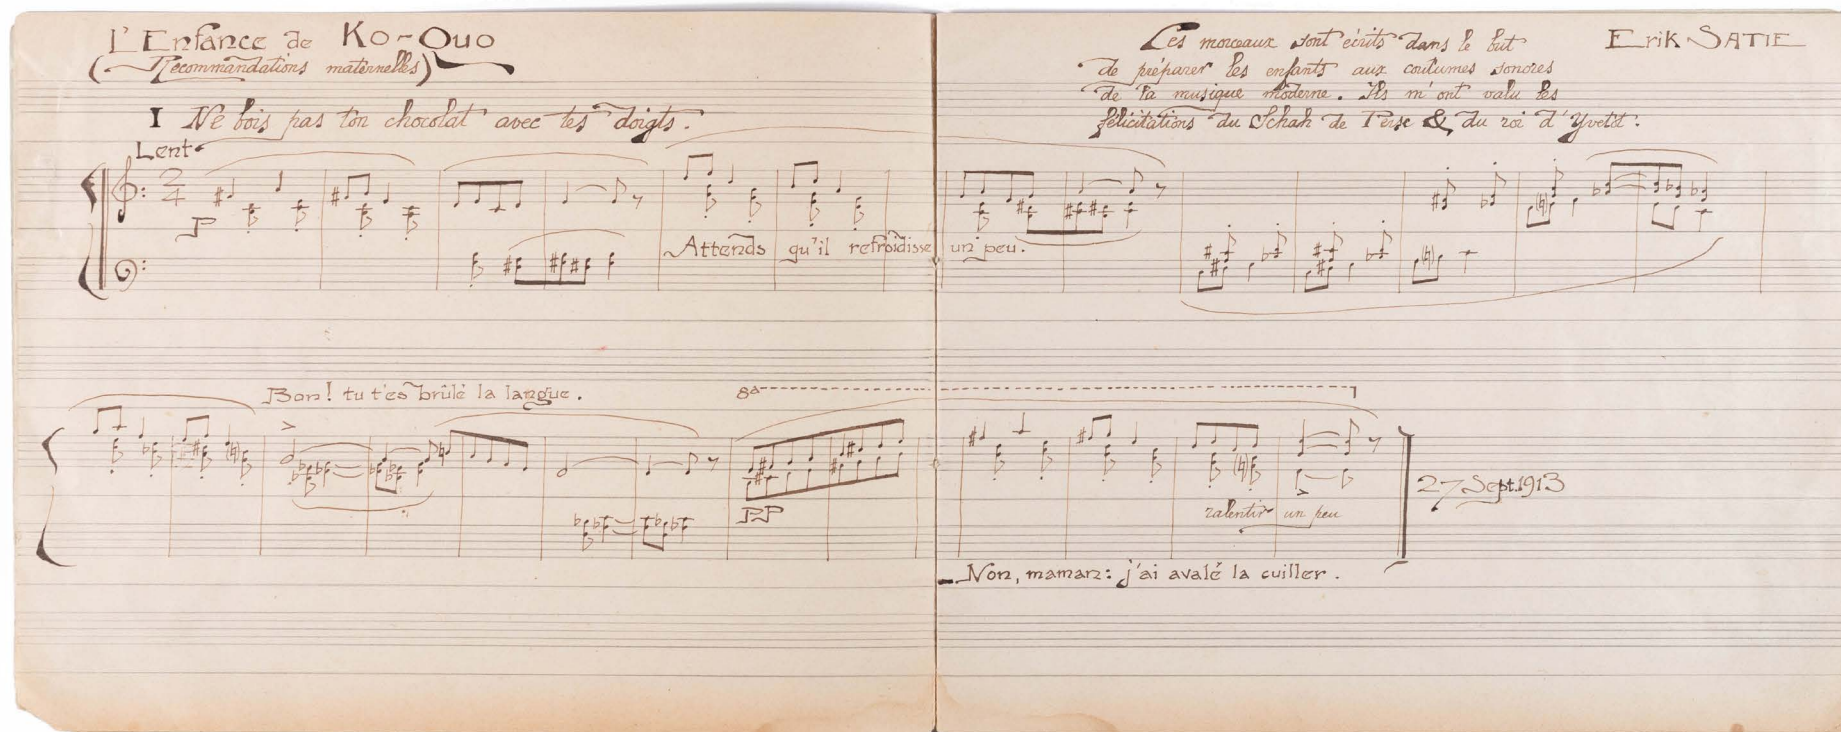 L'Enfance de Ko-Quo
(Recommandations maternelles)
Ces morceaux sont écrits dans le but
de préparer les enfants aux coutumes sonores
de la musique moderne. Ils m'ont valu les
félicitations du Schah de Perse & du roi d'Yvetot:
Erik SATIE
I Ne bois pas ton chocolat avec tes doigts.
Lent
2/4
P
Attends qu'il refroidisse un peu.
Bon! tu t'es brûlé la langue.
8a
PP
ralentir un peu
27 Sept.1913
_Non, maman: j'ai avalé la cuiller.